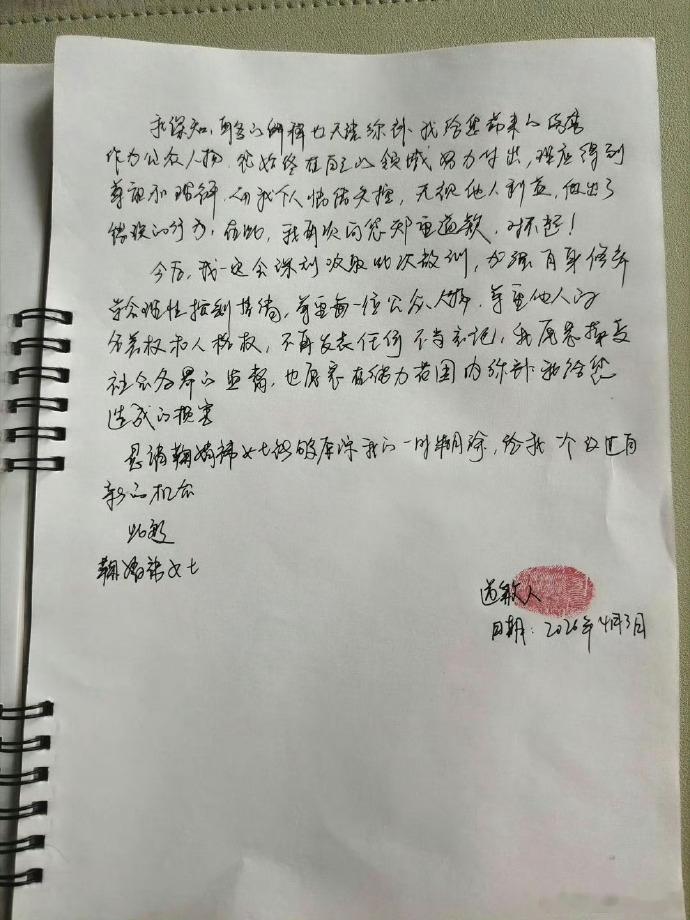 我深知,再多的解释也无法弥补我给您带来的伤害
作为公众人物,您始终在自己的领域努力付出,理应得到
尊重和理解,但我个人情绪失控,无视他人利益,做出了
错误的行为,在此,我再次向您郑重道歉,对不起!
今后,我一定会深刻汲取此次教训,加强自身修养
学会理性控制情绪,尊重每一位公众人物,尊重他人的
名誉权和人格权,不再发表任何不当言论,我愿意接受
社会各界的监督,也愿意在能力范围内弥补我给您
造成的损害
恳请鞠婧祎女士能够原谅我的一时糊涂,给我一个改过自
新的机会
此致
鞠婧祎女士
道歉人
日期:2026年4月3日